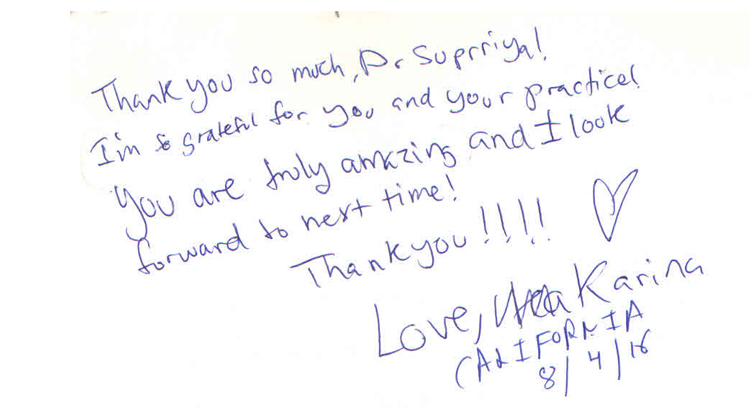 Thank you so much, Dr Suprriya!
I'm so grateful for you and your practice!
You are truly amazing and I look
forward to next time!
Thank you!!!!
Love, Karina
CALIFORNIA
8/4/16